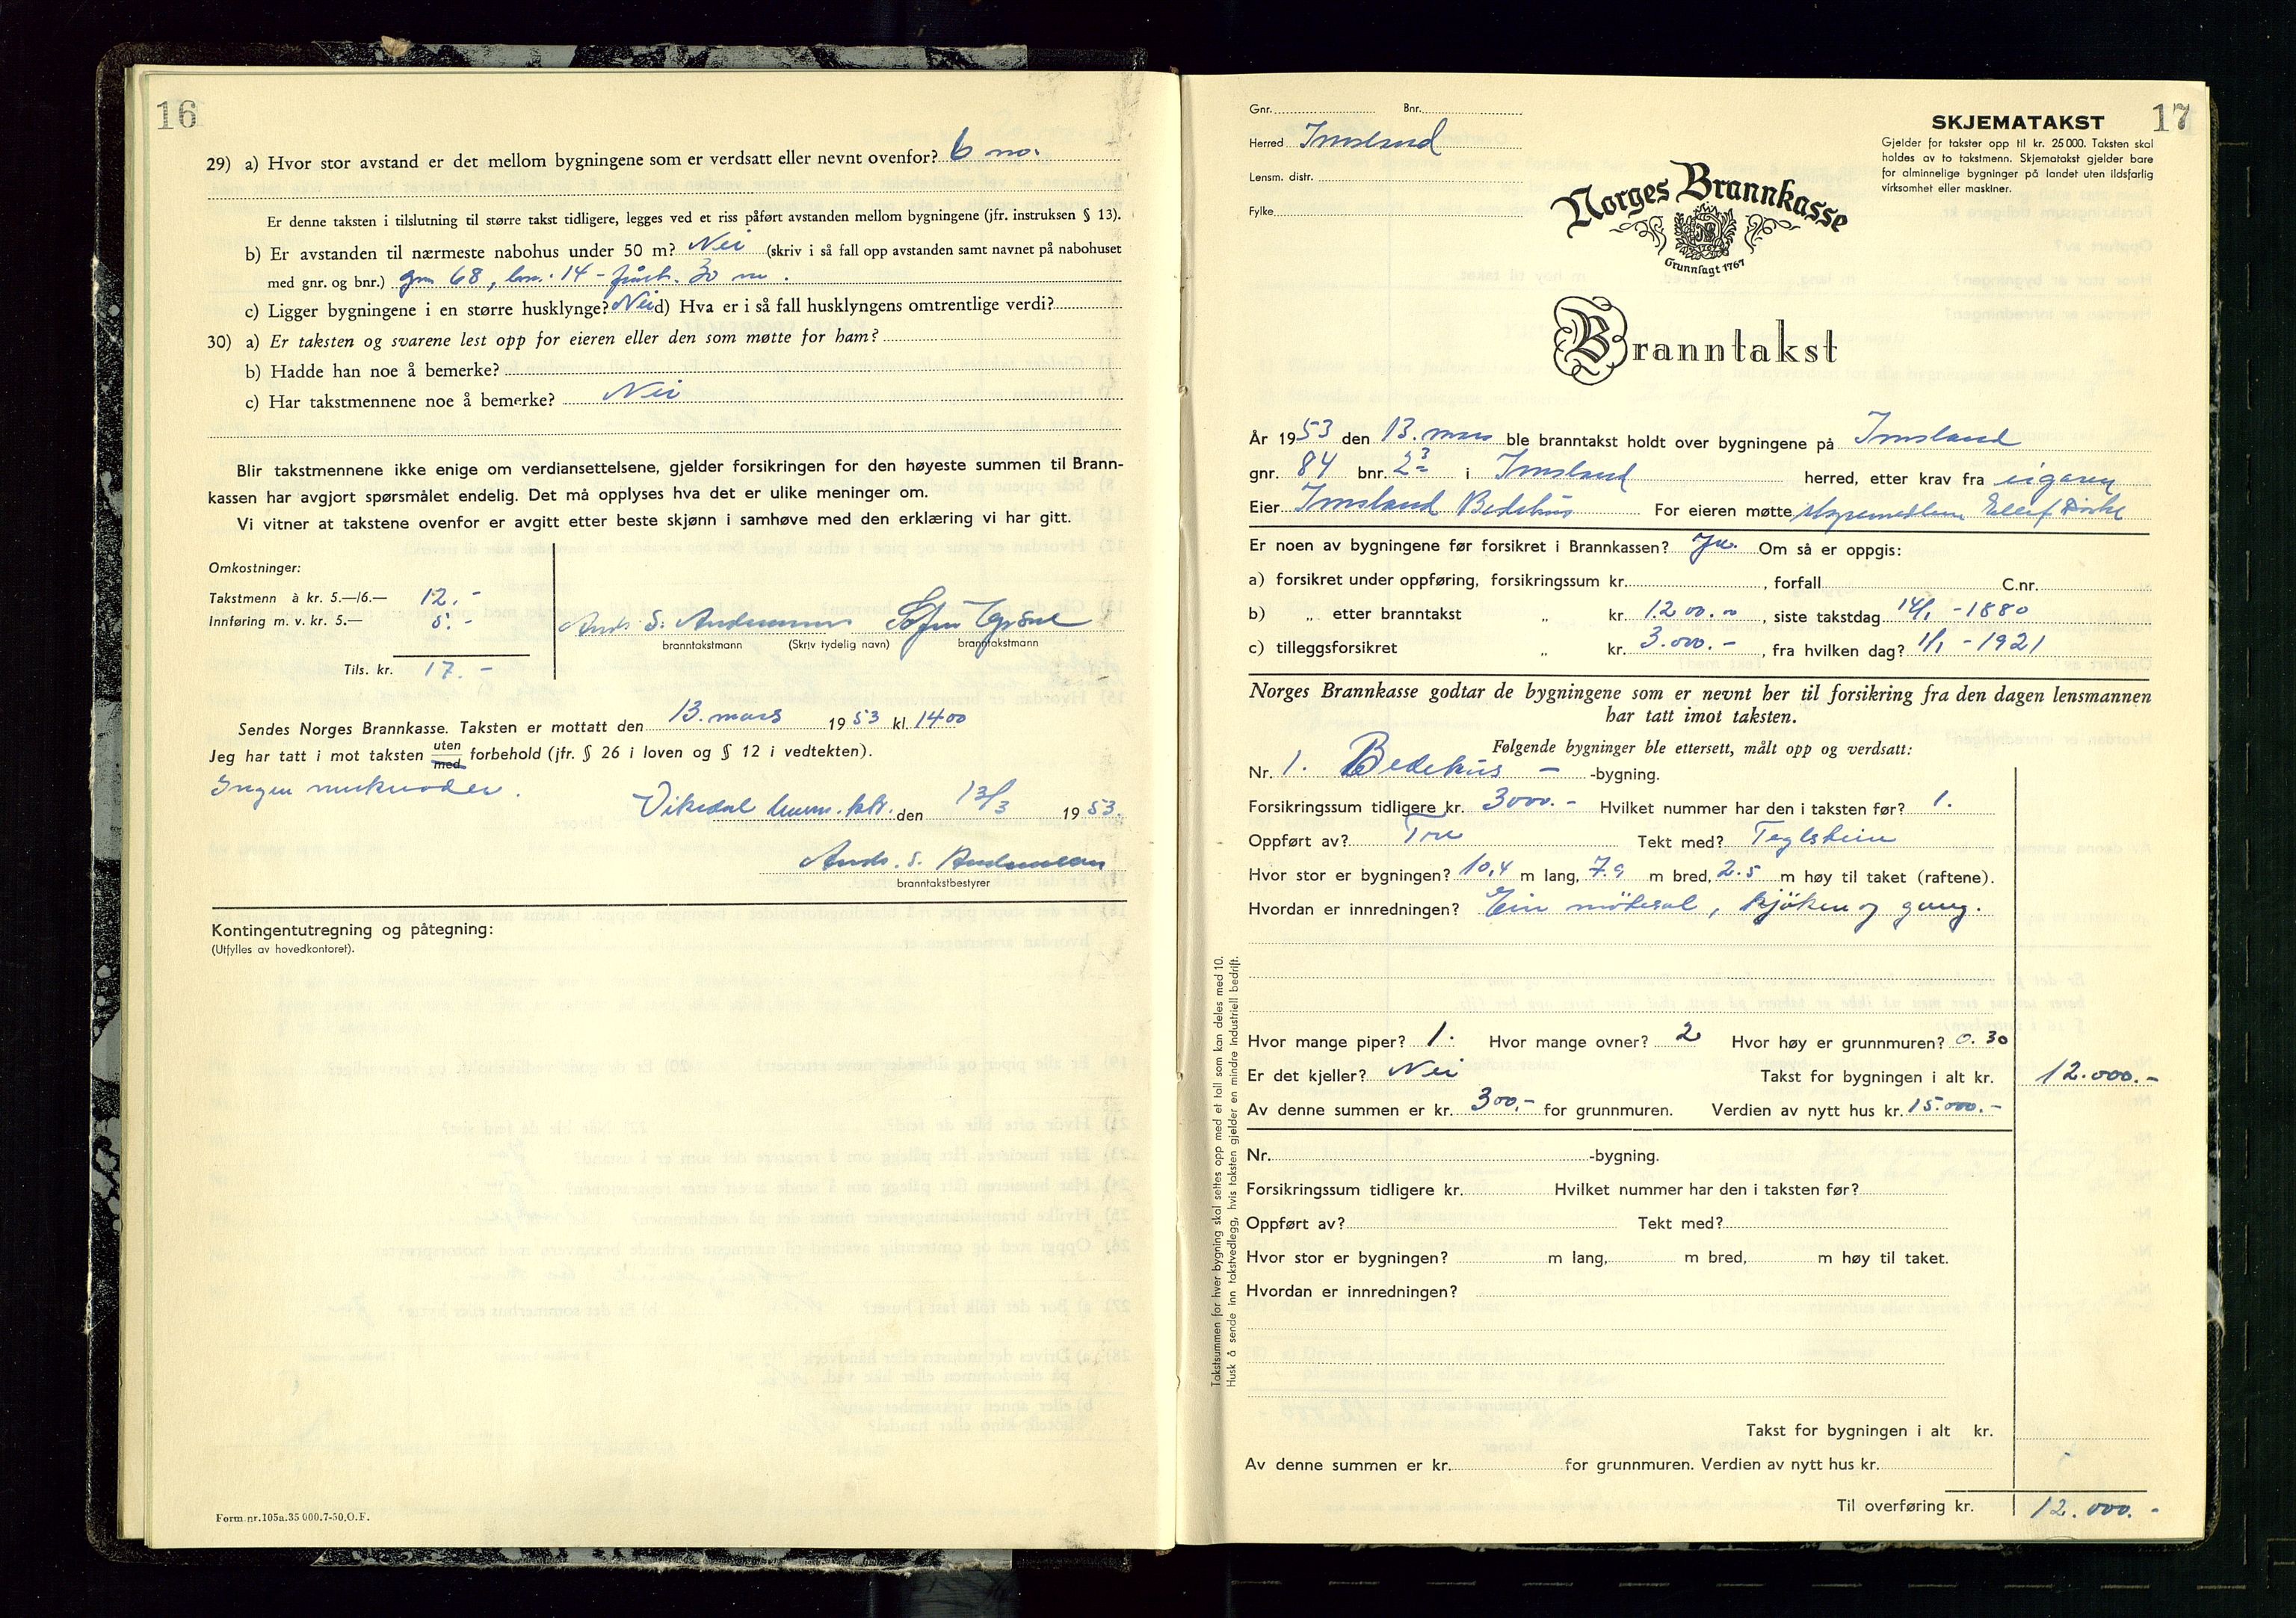 16
29) a) Hvor stor avstand er det mellom bygningene som er verdsatt eller nevnt ovenfor? 6 m.
Er denne taksten i tilslutning til større takst tidligere, legges ved et riss påført avstanden mellom bygningene (jfr. instruksen § 13).
b) Er avstanden til nærmeste nabohus under 50 m? Nei (skriv i så fall opp avstanden samt navnet på nabohuset
med gnr. og bnr.) gnr 68, bnr. 14 - 30 m.
c) Ligger bygningene i en større husklynge? Nei d) Hva er i så fall husklyngens omtrentlige verdi?
30) a) Er taksten og svarene lest opp for eieren eller den som møtte for ham?
b) Hadde han noe å bemerke?
c) Har takstmennene noe å bemerke? Nei
Blir takstmennene ikke enige om verdiansettelsene, gjelder forsikringen for den høyeste summen til Brann-
kassen har avgjort spørsmålet endelig. Det må opplyses hva det er ulike meninger om.
Vi vitner at takstene ovenfor er avgitt etter beste skjønn i samhøve med den erklæring vi har gitt.
Omkostninger:
Takstmenn à kr. 5.—/6.— 12.-
Innføring m. v. kr. 5.— 5.-
Tils. kr. 17.-
Ands. S. Andersen
branntakstmann (Skriv tydelig navn) branntakstmann
Sendes Norges Brannkasse. Taksten er mottatt den 13. mars 1953 kl. 1400
Jeg har tatt i mot taksten uten med forbehold (jfr. § 26 i loven og § 12 i vedtekten).
Ingen merknader.
Vikedal den 13/3 1953.
Ands. S. Andersen
branntakstbestyrer
Kontingentutregning og påtegning:
(Utfylles av hovedkontoret).
Form nr. 105a. 35 000. 7-50. O. F.
17
Gnr. Bnr.
Herred Imsland
Lensm. distr.
Fylke
SKJEMATAKST
Gjelder for takster opp til kr. 25 000. Taksten skal
holdes av to takstmenn. Skjematakst gjelder bare
for alminnelige bygninger på landet uten ildsfarlig
virksomhet eller maskiner.
Norges Brannkasse
Grunnlagt 1767
Branntakst
År 1953 den 13. mars ble branntakst holdt over bygningene på Imsland
gnr. 84 bnr. 23 i Imsland herred, etter krav fra eigaren
Eier Imsland Bedehus For eieren møtte styremedlem
Er noen av bygningene før forsikret i Brannkassen? Ja. Om så er oppgis:
a) forsikret under oppføring, forsikringssum kr. , forfall C.nr.
b) „ etter branntakst „ kr. 1200.- , siste takstdag 14/1 - 1880
c) tilleggsforsikret „ kr. 3.000.- , fra hvilken dag? 1/1 - 1921
Norges Brannkasse godtar de bygningene som er nevnt her til forsikring fra den dagen lensmannen
har tatt imot taksten.
Følgende bygninger ble ettersett, målt opp og verdsatt:
Nr. 1. Bedehus - -bygning.
Forsikringssum tidligere kr. 3000.- Hvilket nummer har den i taksten før? 1.
Oppført av? Tre Tekt med? Teglstein
Hvor stor er bygningen? 10,4 m lang, 7.9 m bred, 2.5 m høy til taket (raftene).
Hvordan er innredningen? Ein møtesal, kjøken og gang.
Hvor mange piper? 1. Hvor mange ovner? 2 Hvor høy er grunnmuren? 0.30
Er det kjeller? Nei Takst for bygningen i alt kr. 12.000.-
Av denne summen er kr. 300.- for grunnmuren. Verdien av nytt hus kr. 15.000.-
Nr. -bygning.
Forsikringssum tidligere kr. Hvilket nummer har den i taksten før?
Oppført av? Tekt med?
Hvor stor er bygningen? m lang, m bred, m høy til taket.
Hvordan er innredningen?
Takst for bygningen i alt kr.
Av denne summen er kr. for grunnmuren. Verdien av nytt hus kr.
Til overføring kr. 12.000.-
Takstsummen for hver bygning skal settes opp med et tall som kan deles med 10.
Husk å sende inn takstvedlegg, hvis taksten gjelder en mindre industriell bedrift.